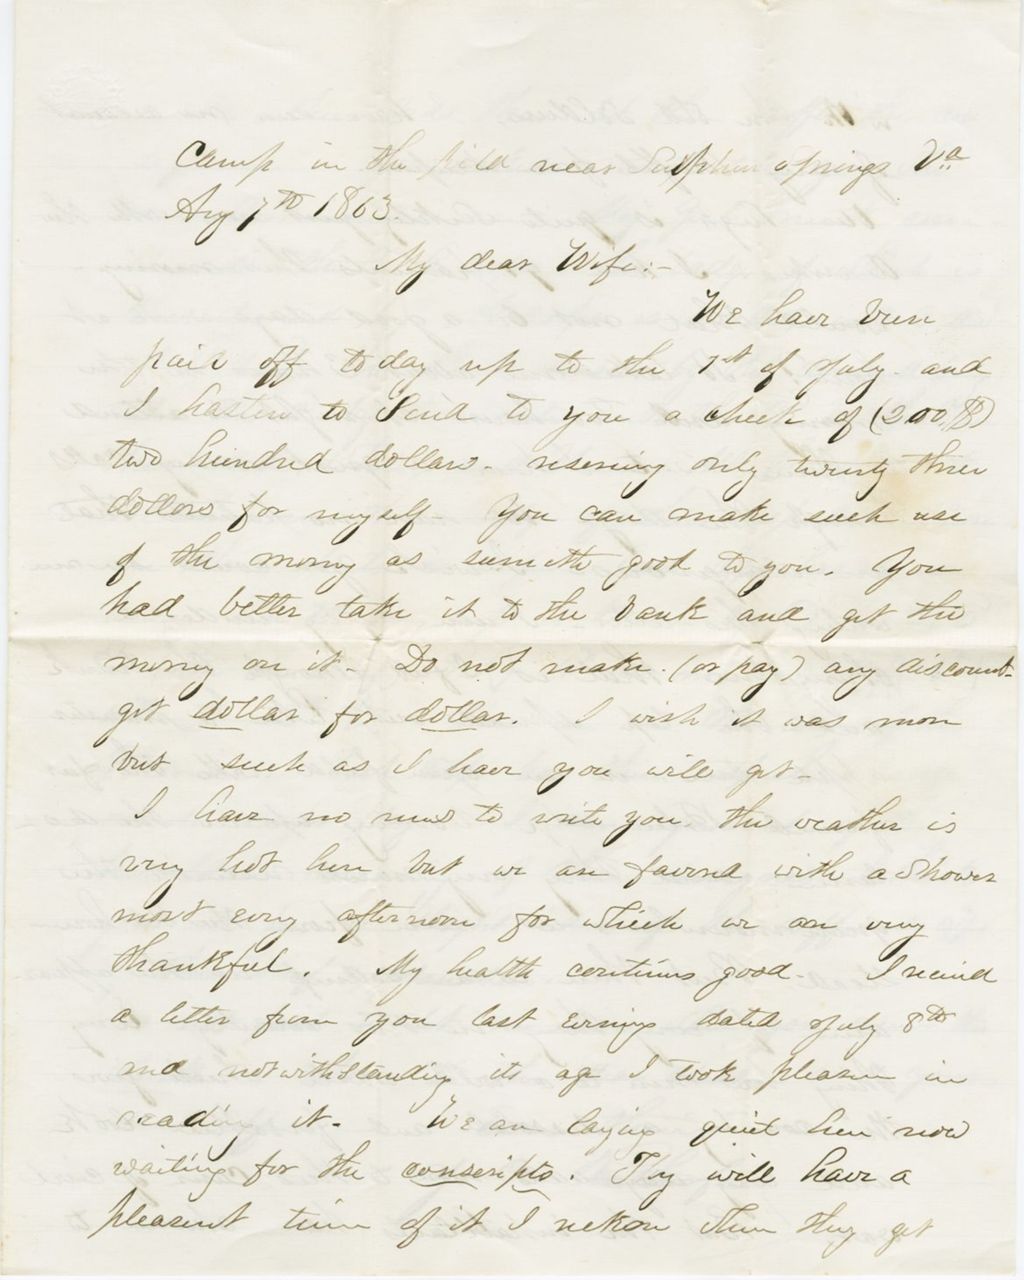 Camp in the field near Sulphur Springs Va
Aug 7th 1863
My dear Wife:-
We have been
paid off today up to the 1st of July and
I hasten to send to you a check of (200.$)
two hundred dollars. reserving only twenty three
dollars for myself- You can make such use
of the money as seemeth good to you. You
had better take it to the bank and get the
money on it- Do not make (or pay) any discount-
get dollar for dollar. I wish it was more
but such as I have you will get-
I have no news to write you the weather is
very hot here but we are favored with a shower
most every afternoon for which we are very
thankful. My health continues good- I received
a letter from you last evening dated July 8th
and notwithstanding its age I took pleasure in
reading it. We are laying quiet here now
waiting for the conscripts. They will have a
pleasent time of it I reckon when they get